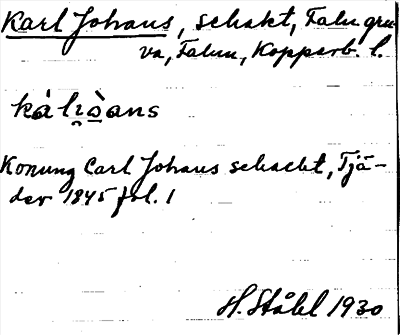 Karl Johans, schakt, Falu gru
va, Falun, Kopparb. l.
kàlı̯o̱̊̀ans
Konung Carl Johans schacht, Tjä-
der 1845 fol. 1
H. Ståhl 1930